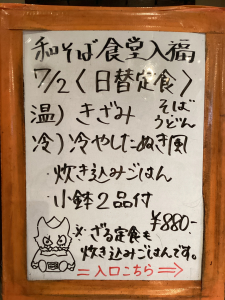 和そば食堂入福
7/2〈日替定食〉
温)きざみ そば
うどん
冷)冷やしたぬき風
・炊き込みごはん
・小鉢2品付
¥880-
※ざる定食も
炊き込みごはんです。
=入口こちら⇒